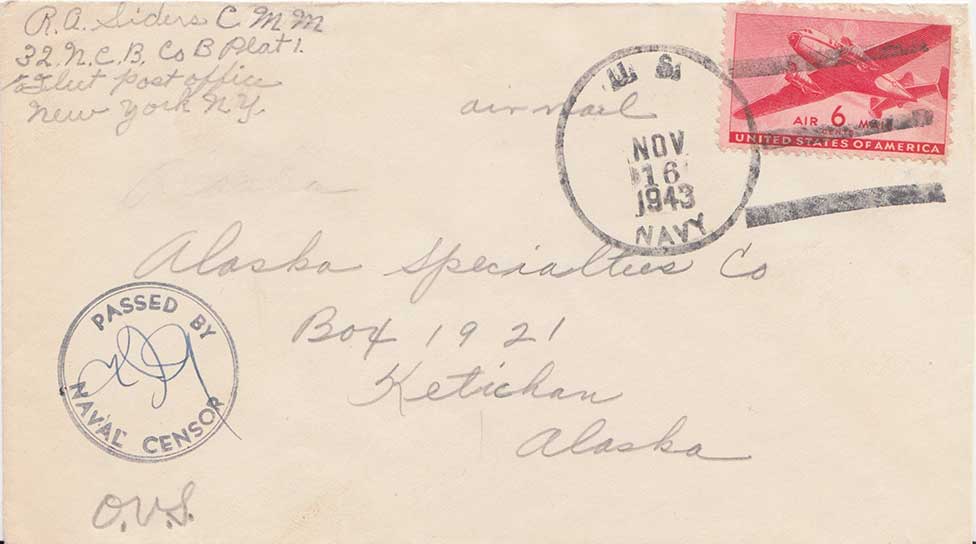 R.A. Siders C M M
32. N.C.B. Co B Plat 1.
Fleet post office
New York N.Y.
air mail
U S
NOV
16
1943
NAVY
AIR 6 MAIL
CENTS
UNITED STATES OF AMERICA
Alaska
Alaska Specialties Co
Box 1921
Ketichan
Alaska
PASSED BY
NAVAL CENSOR
O.V.S.